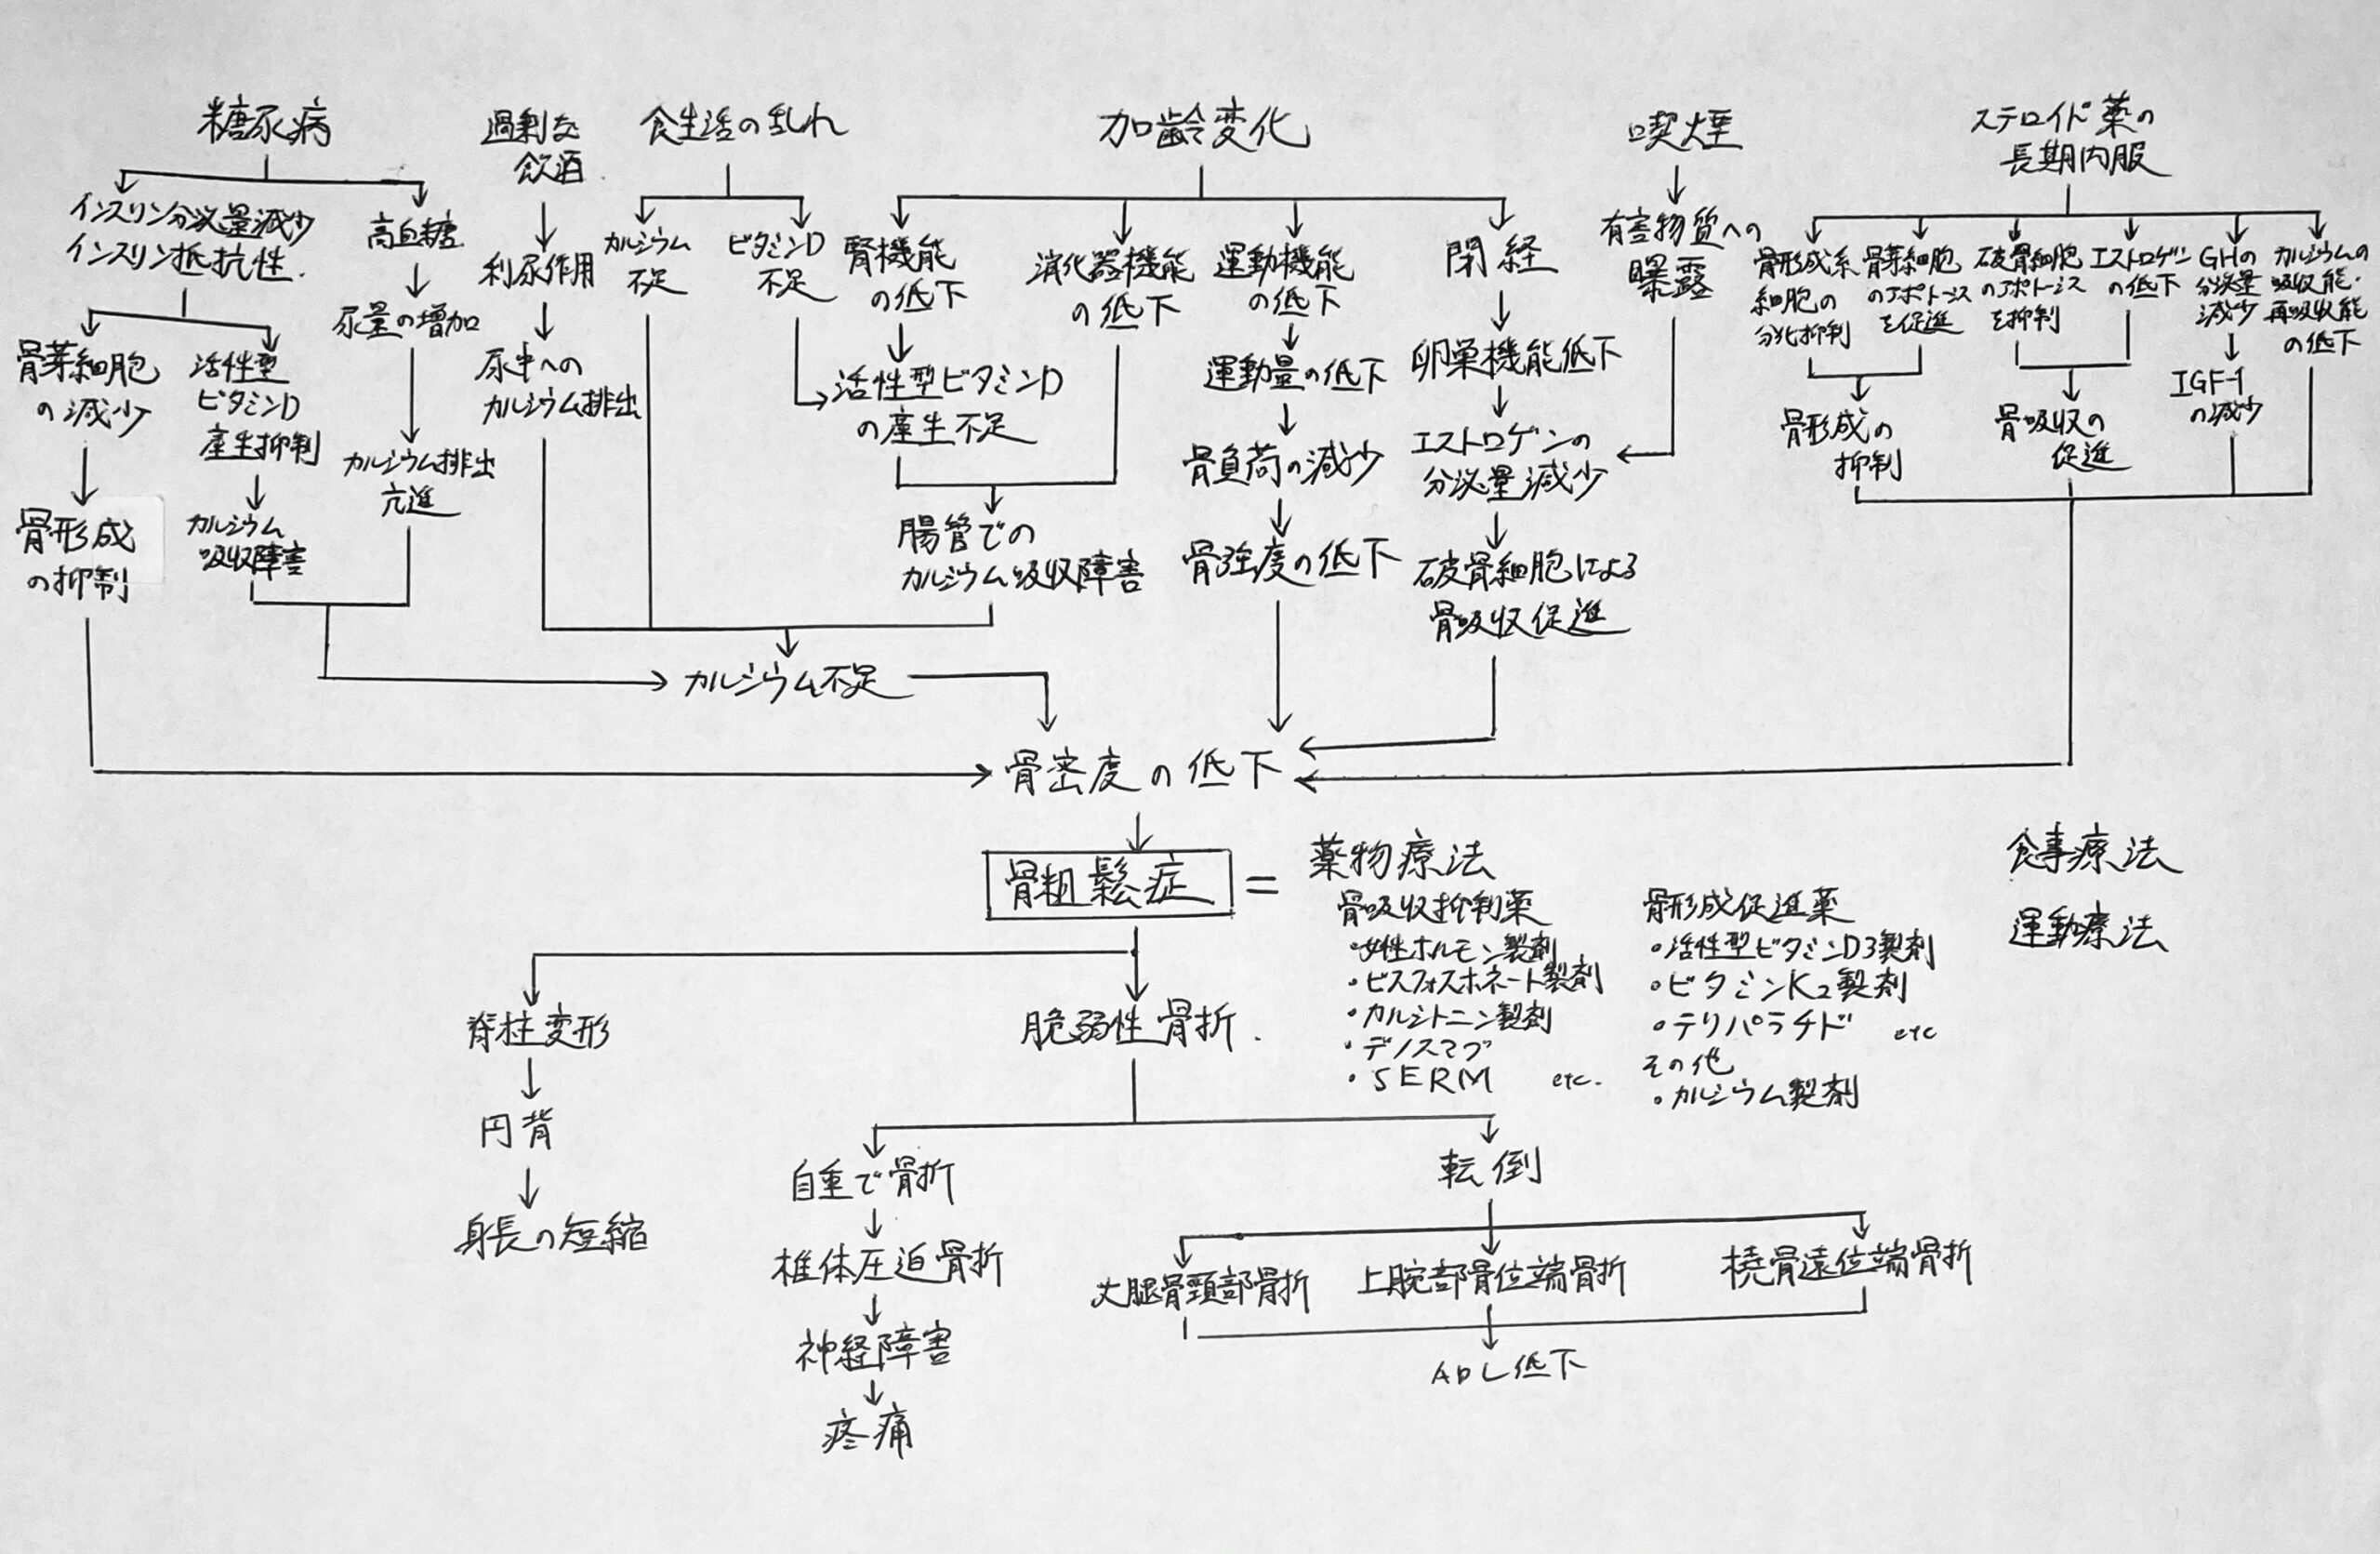 糖尿病
インスリン分泌量減少
インスリン抵抗性.
骨芽細胞
の減少
骨形成
の抑制
活性型
ビタミンD
産生抑制
カルシウム
吸収障害
高血糖
尿量の増加
カルシウム排出
亢進
過剰な
飲酒
利尿作用
尿中への
カルシウム排出
食生活の乱れ
カルシウム
不足
ビタミンD
不足
加齢変化
腎機能
の低下
活性型ビタミンD
の産生不足
消化器機能
の低下
腸管での
カルシウム吸収障害
運動機能
の低下
運動量の低下
骨負荷の減少
骨強度の低下
閉経
卵巣機能低下
エストロゲンの
分泌量減少
破骨細胞による
骨吸収促進
喫煙
有害物質への
曝露
ステロイド薬の
長期内服
骨形成系
細胞の
分化抑制
骨芽細胞
のアポトーシス
を促進
骨形成の
抑制
破骨細胞
のアポトーシス
を抑制
エストロゲン
の低下
骨吸収の
促進
GHの
分泌量
減少
IGF-1
の減少
カルシウムの
吸収能・
再吸収能
の低下
カルシウム不足
骨密度の低下
骨粗鬆症 =
薬物療法
骨吸収抑制薬
・女性ホルモン製剤
・ビスフォスホネート製剤
・カルシトニン製剤
・デノスマブ
・SERM etc.
骨形成促進薬
・活性型ビタミンD3製剤
・ビタミンK2製剤
・テリパラチド etc
その他
・カルシウム製剤
食事療法
運動療法
脊柱変形
円背
身長の短縮
脆弱性骨折.
自重で骨折
椎体圧迫骨折
神経障害
疼痛
転倒
大腿骨頸部骨折
上腕部骨位端骨折
橈骨遠位端骨折
ADL低下